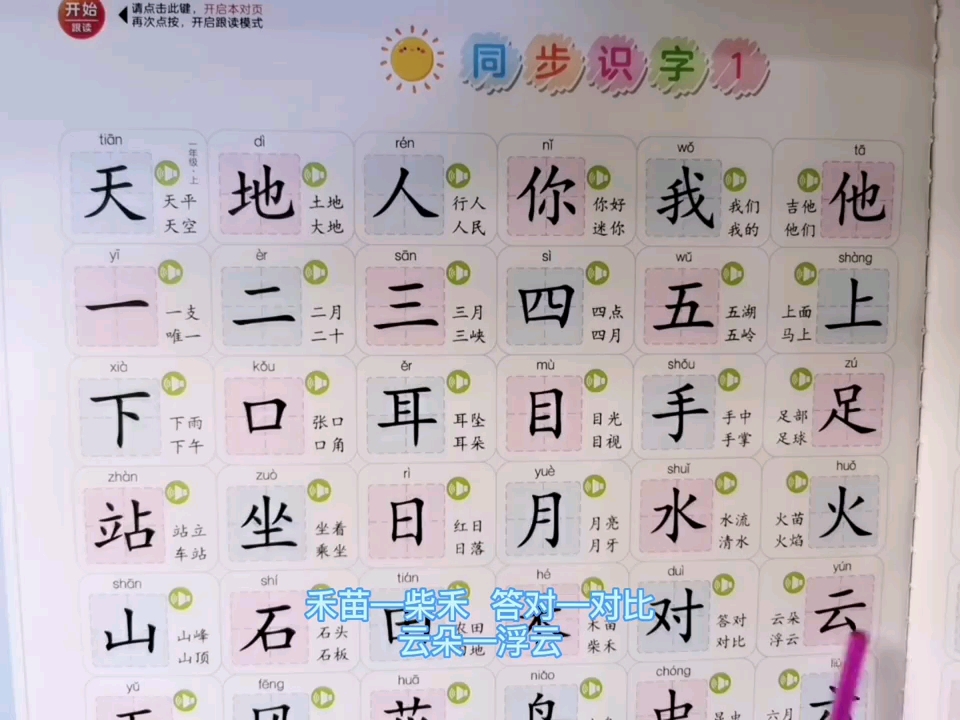 开始
跟读
请点击此键，开启本对页
再次点按，开启跟读模式
同步识字1
一年级·上
tiān dì rén nǐ wǒ tā
天 地 人 你 我 他
天平 土地 行人 你好 我们 吉他
天空 大地 人民 迷你 我的 他们
yī èr sān sì wǔ shàng
一 二 三 四 五 上
一支 二月 三月 四点 五湖 上面
唯一 二十 三峡 四月 五岭 马上
xià kǒu ěr mù shǒu zú
下 口 耳 目 手 足
下雨 张口 耳坠 目光 手中 足部
下午 口角 耳朵 目视 手掌 足球
zhàn zuò rì yuè shuǐ huǒ
站 坐 日 月 水 火
站立 坐着 红日 月亮 水流 火苗
车站 乘坐 日落 月牙 清水 火焰
shān shí tián hé duì yún
山 石 田 禾 对 云
山峰 石头 农田 禾苗 答对 云朵
山顶 石板 田地 柴禾 对比 浮云
禾苗—柴禾 答对—对比
云朵—浮云
yǔ fēng huā niǎo chóng liù
昆虫 六月